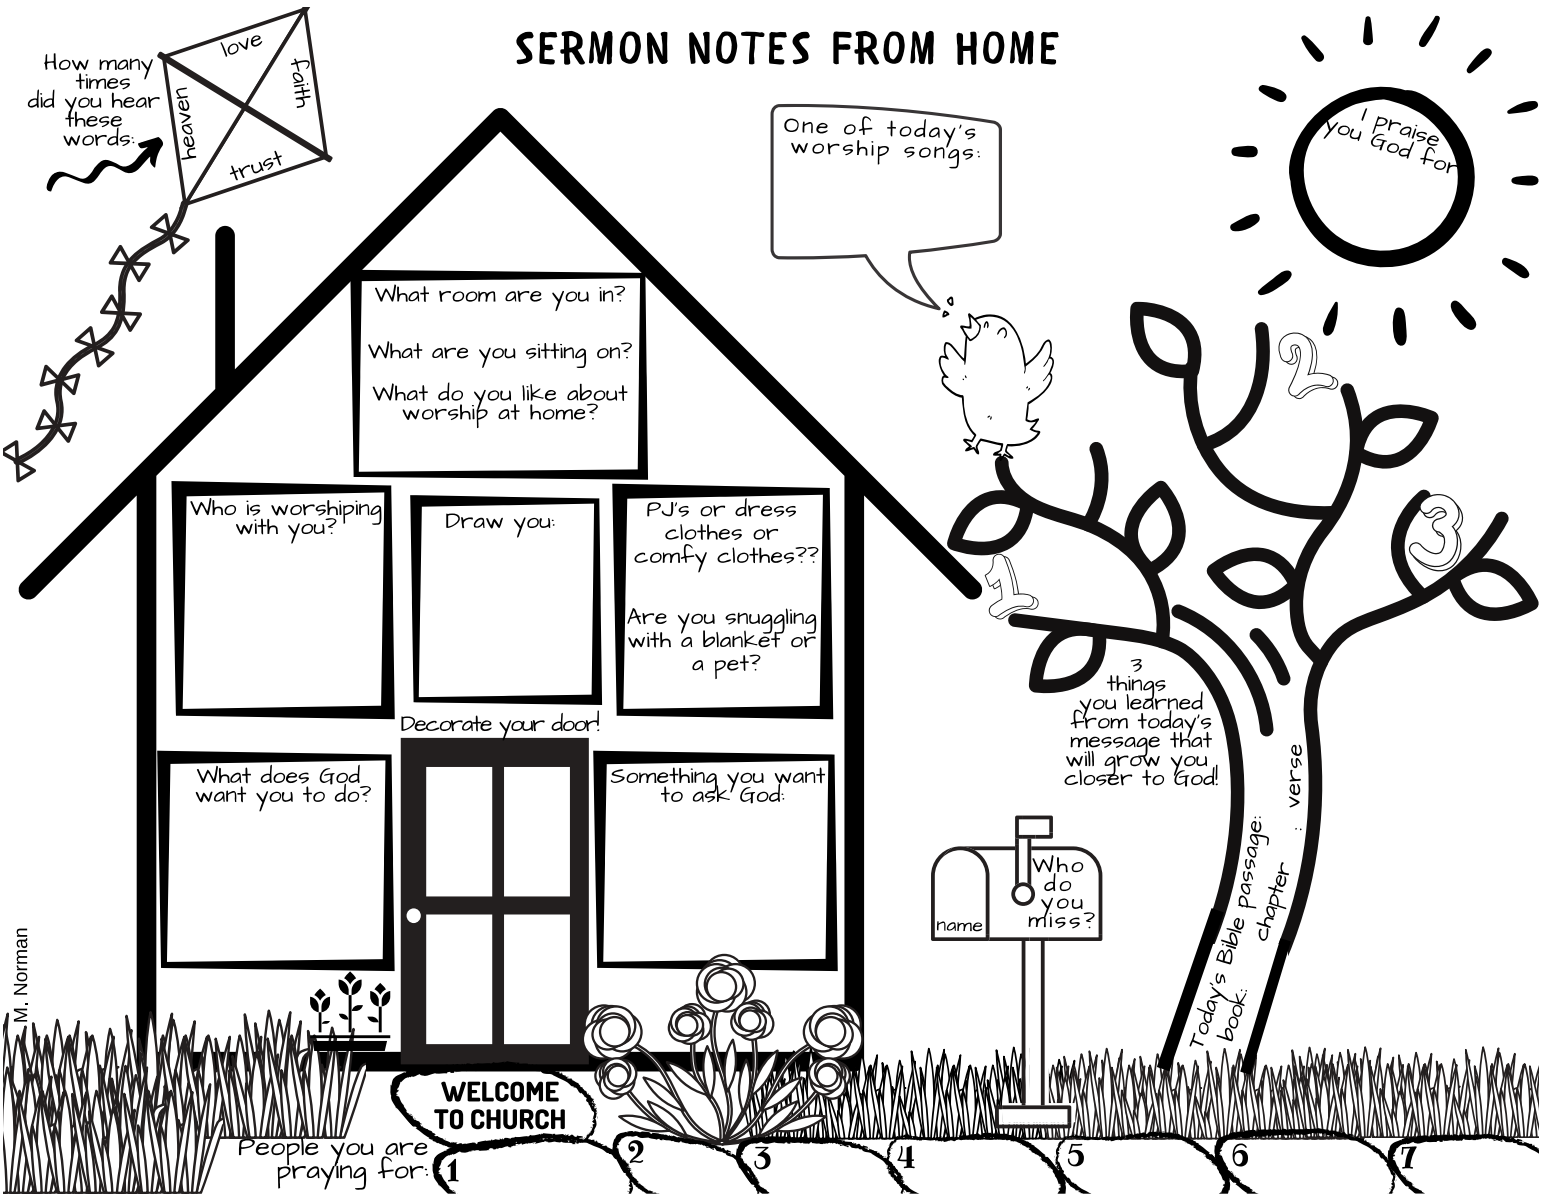 SERMON NOTES FROM HOME
How many
times
did you hear
these
words:
love
faith
heaven
trust
One of today's
worship songs:
I praise
you God for
What room are you in?
What are you sitting on?
What do you like about
worship at home?
Who is worshiping
with you?
Draw you:
PJ's or dress
clothes or
comfy clothes??
Are you snuggling
with a blanket or
a pet?
Decorate your door!
What does God
want you to do?
Something you want
to ask God:
1
2
3
3
things
you learned
from today's
message that
will grow you
closer to God!
Today's Bible passage:
book:
chapter : verse
name
Who
do
you
miss?
M. Norman
WELCOME
TO CHURCH
People you are
praying for:
1
2
3
4
5
6
7